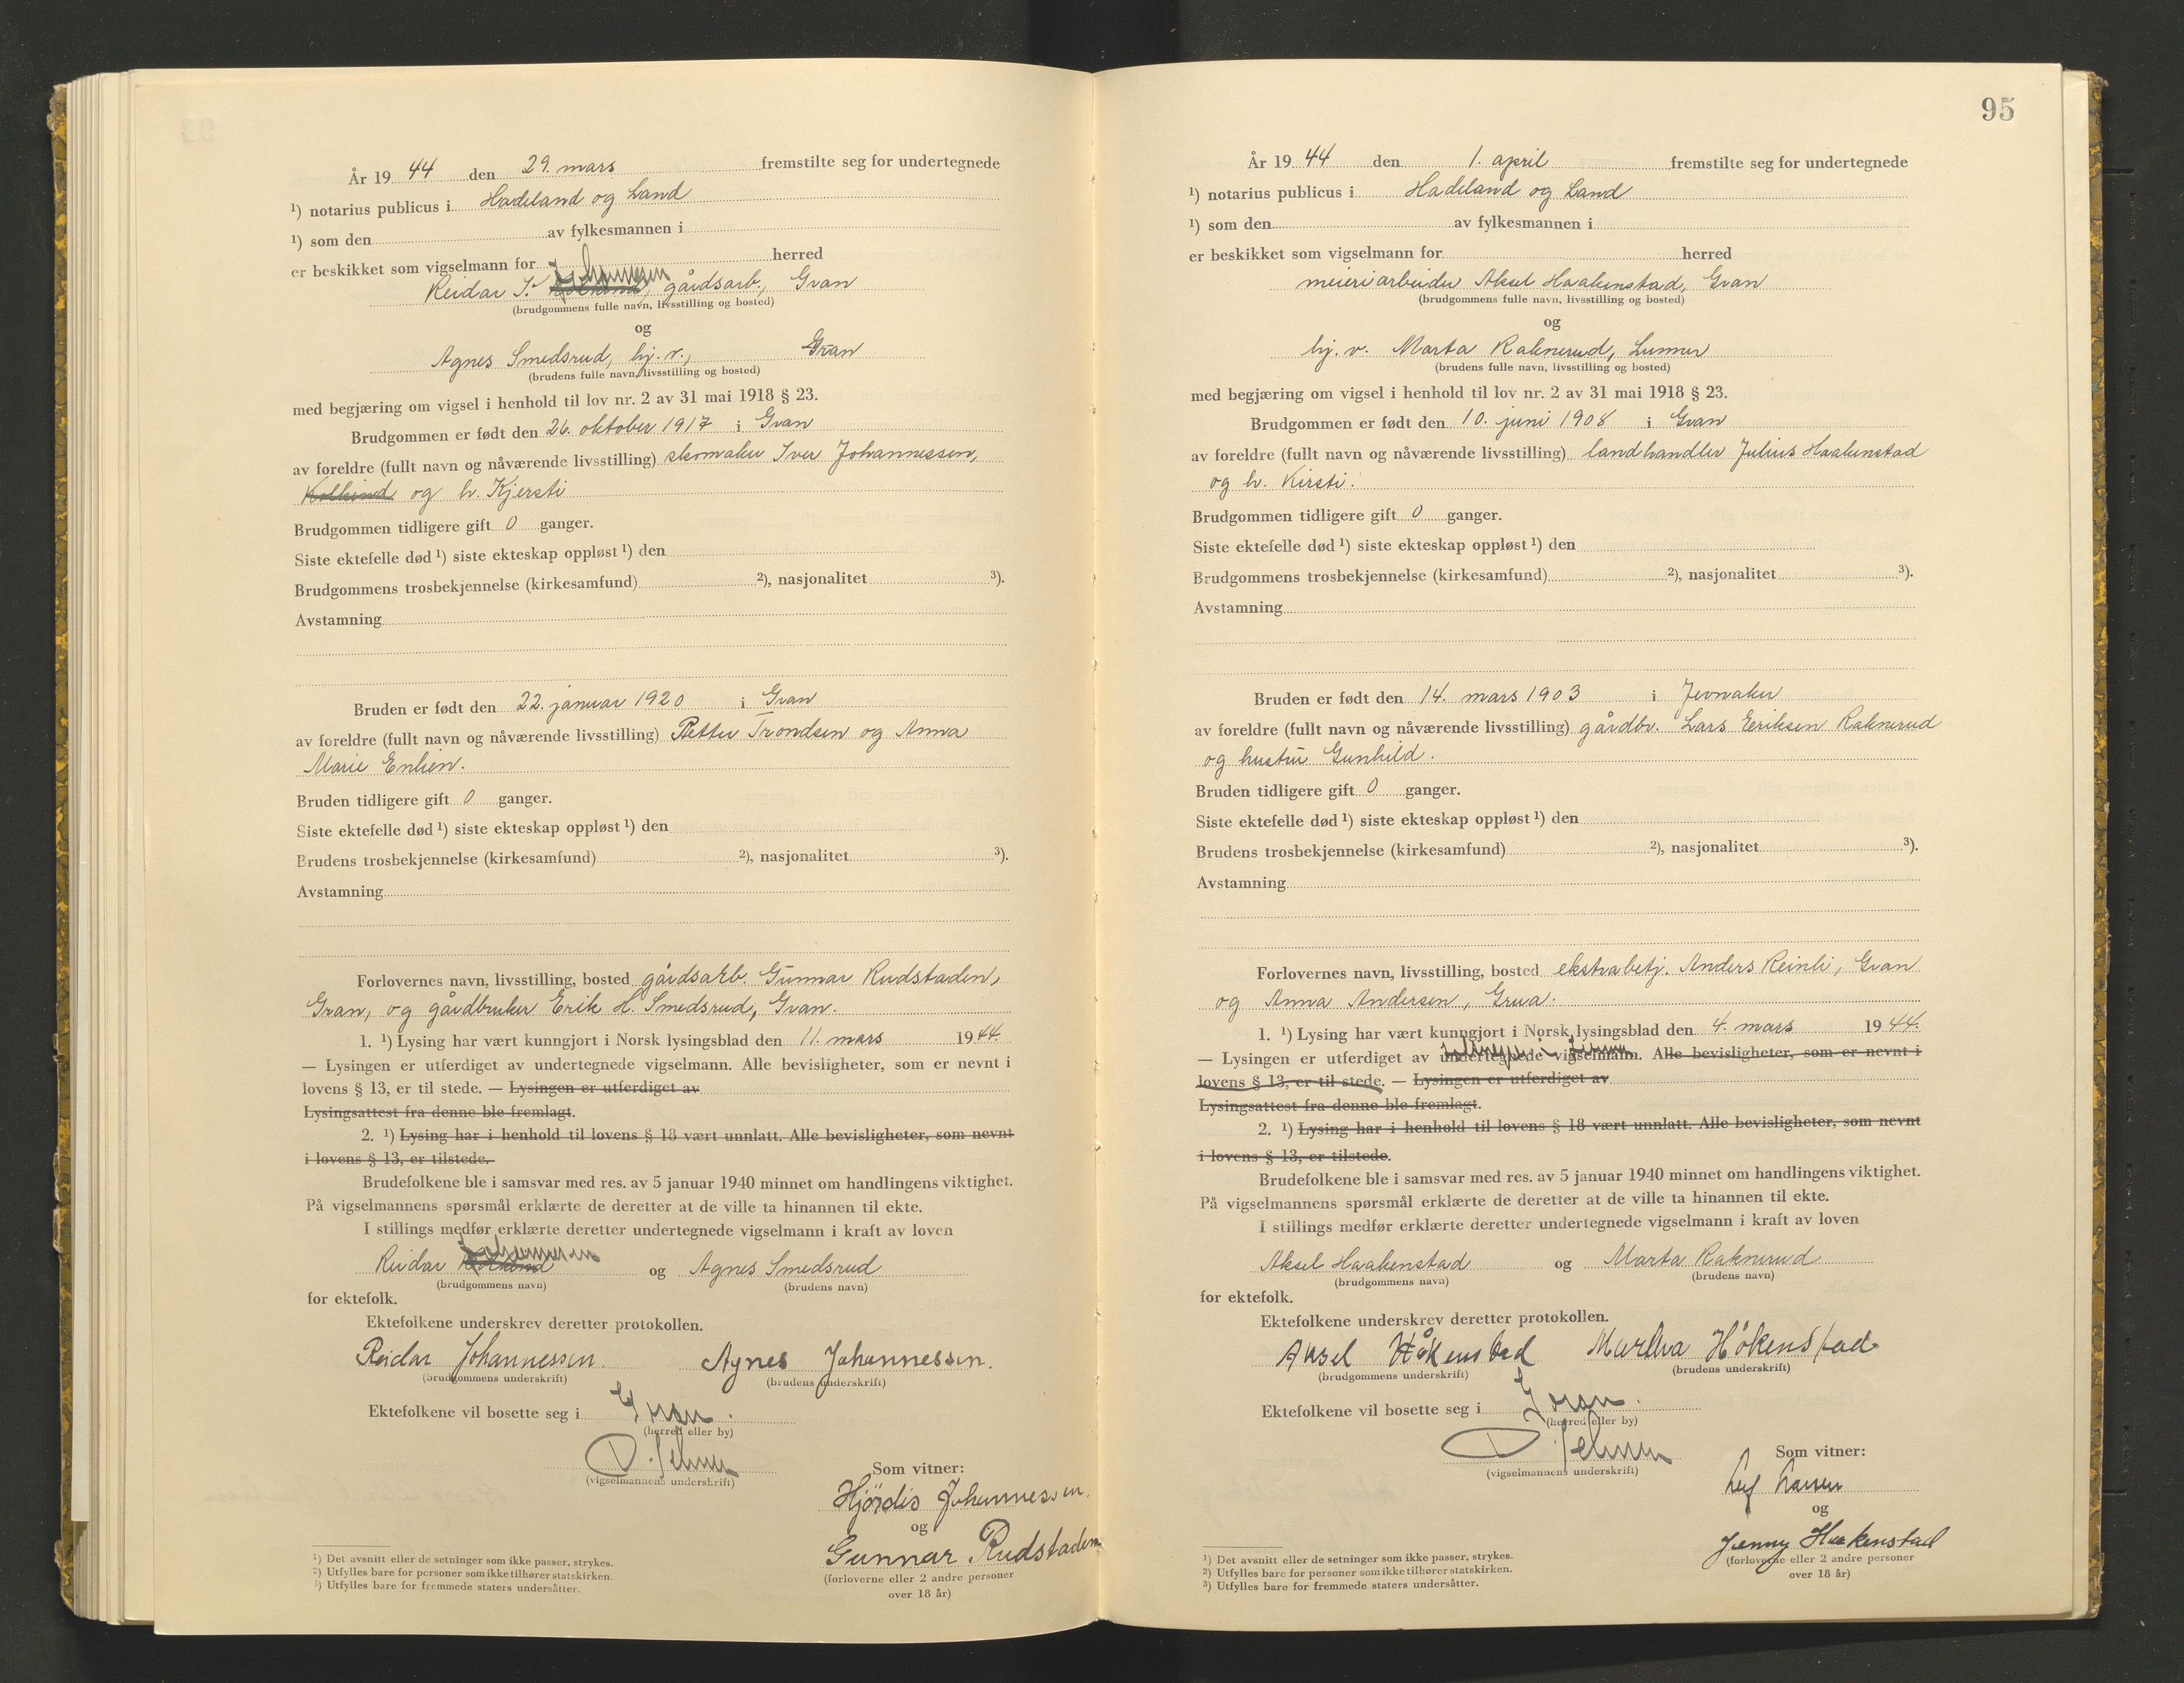 År 19 44 den 29. mars fremstilte seg for undertegnede
¹) notarius publicus i Hadeland og Land
¹) som den av fylkesmannen i
er beskikket som vigselmann for herred
Johannessen
Reidar I. gårdsarb., Gran
(brudgommens fulle navn, livsstilling og bosted)
og
Agnes Smedsrud, hj. v., Gran
(brudens fulle navn, livsstilling og bosted)
med begjæring om vigsel i henhold til lov nr. 2 av 31 mai 1918 § 23.
Brudgommen er født den 26. oktober 1917 i Gran
av foreldre (fullt navn og nåværende livsstilling) skomaker Iver Johannessen,
og h. Kjersti
Brudgommen tidligere gift 0 ganger.
Siste ektefelle død ¹) siste ekteskap oppløst ¹) den
Brudgommens trosbekjennelse (kirkesamfund) ²), nasjonalitet ³).
Avstamning
Bruden er født den 22. januar 1920 i Gran
av foreldre (fullt navn og nåværende livsstilling) Petter Trondsen og Anna
Marie Enlien.
Bruden tidligere gift 0 ganger.
Siste ektefelle død ¹) siste ekteskap oppløst ¹) den
Brudens trosbekjennelse (kirkesamfund) ²), nasjonalitet ³).
Avstamning
Forlovernes navn, livsstilling, bosted gårdsarb. Gunnar Rudstaden,
Gran, og gårdbruker Erik H. Smedsrud, Gran.
1. ¹) Lysing har vært kunngjort i Norsk lysingsblad den 11. mars 19 44.
— Lysingen er utferdiget av undertegnede vigselmann. Alle bevisligheter, som er nevnt i
lovens § 13, er til stede. — Lysingen er utferdiget av
Lysingsattest fra denne ble fremlagt.
2. ¹) Lysing har i henhold til lovens § 18 vært unnlatt. Alle bevisligheter, som nevnt
i lovens § 13, er tilstede.
Brudefolkene ble i samsvar med res. av 5 januar 1940 minnet om handlingens viktighet.
På vigselmannens spørsmål erklærte de deretter at de ville ta hinannen til ekte.
I stillings medfør erklærte deretter undertegnede vigselmann i kraft av loven
Johannessen
Reidar og Agnes Smedsrud
(brudgommens navn) (brudens navn)
for ektefolk.
Ektefolkene underskrev deretter protokollen.
Reidar Johannessen. Agnes Johannessen.
(brudgommens underskrift) (brudens underskrift)
Ektefolkene vil bosette seg i Gran.
(herred eller by)
(vigselmannens underskrift)
Som vitner:
Hjördis Johannessen.
og
Gunnar Rudstaden
(forloverne eller 2 andre personer
over 18 år)
¹) Det avsnitt eller de setninger som ikke passer, strykes.
²) Utfylles bare for personer som ikke tilhører statskirken.
³) Utfylles bare for fremmede staters undersåtter.
95
År 19 44 den 1. april fremstilte seg for undertegnede
¹) notarius publicus i Hadeland og Land
¹) som den av fylkesmannen i
er beskikket som vigselmann for herred
meieriarbeider Aksel Haakenstad, Gran
(brudgommens fulle navn, livsstilling og bosted)
og
hj. v. Marta Raknerud, Lunner
(brudens fulle navn, livsstilling og bosted)
med begjæring om vigsel i henhold til lov nr. 2 av 31 mai 1918 § 23.
Brudgommen er født den 10. juni 1908 i Gran
av foreldre (fullt navn og nåværende livsstilling) landhandler Julius Haakenstad
og h. Kirsti.
Brudgommen tidligere gift 0 ganger.
Siste ektefelle død ¹) siste ekteskap oppløst ¹) den
Brudgommens trosbekjennelse (kirkesamfund) ²), nasjonalitet ³).
Avstamning
Bruden er født den 14. mars 1903 i Jevnaker
av foreldre (fullt navn og nåværende livsstilling) gårdbr. Lars Eriksen Raknerud
og hustru Gunhild.
Bruden tidligere gift 0 ganger.
Siste ektefelle død ¹) siste ekteskap oppløst ¹) den
Brudens trosbekjennelse (kirkesamfund) ²), nasjonalitet ³).
Avstamning
Forlovernes navn, livsstilling, bosted ekstrabetj. Anders Reinli, Gran
og Anna Andersen, Grua.
1. ¹) Lysing har vært kunngjort i Norsk lysingsblad den 4. mars 19 44.
— Lysingen er utferdiget av undertegnede vigselmann. Alle bevisligheter, som er nevnt i
lovens § 13, er til stede. — Lysingen er utferdiget av
Lysingsattest fra denne ble fremlagt.
2. ¹) Lysing har i henhold til lovens § 18 vært unnlatt. Alle bevisligheter, som nevnt
i lovens § 13, er tilstede.
Brudefolkene ble i samsvar med res. av 5 januar 1940 minnet om handlingens viktighet.
På vigselmannens spørsmål erklærte de deretter at de ville ta hinannen til ekte.
I stillings medfør erklærte deretter undertegnede vigselmann i kraft av loven
Aksel Haakenstad og Marta Raknerud
(brudgommens navn) (brudens navn)
for ektefolk.
Ektefolkene underskrev deretter protokollen.
Aksel Håkenstad Martha Håkenstad
(brudgommens underskrift) (brudens underskrift)
Ektefolkene vil bosette seg i Gran.
(herred eller by)
(vigselmannens underskrift)
Som vitner:
Leif
og
Jenny Haakenstad
(forloverne eller 2 andre personer
over 18 år)
¹) Det avsnitt eller de setninger som ikke passer, strykes.
²) Utfylles bare for personer som ikke tilhører statskirken.
³) Utfylles bare for fremmede staters undersåtter.